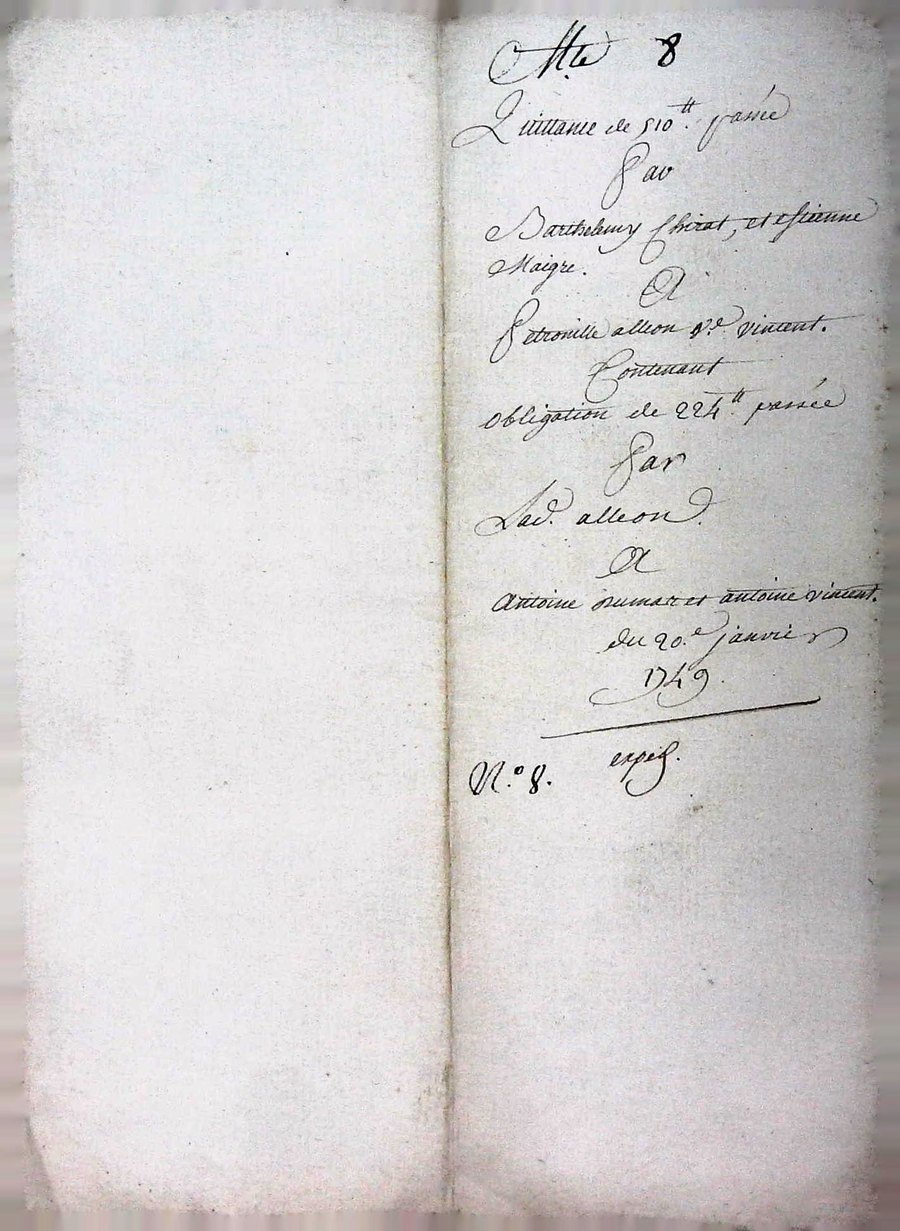 8
Quittance de 510ᵗᵗ passée
Par
Barthelemy Chirat, et estienne
Maigre.
A
Petronille alleon vᵉ vincent.
Contenant
obligation de 224ᵗᵗ passée
Par
Lad. alleon
A
Antoine dumas et antoine vincent.
du 20.ᵉ janvier
1749.
N.º 8. exped.